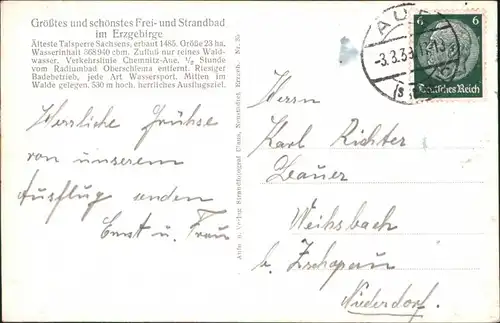 Größtes und schönstes Frei- und Strandbad
im Erzgebirge
Älteste Talsperre Sachsens, erbaut 1485. Größe 23 ha,
Wasserinhalt 868940 cbm. Zufluß nur reines Wald-
wasser. Verkehrslinie Chemnitz-Aue. 1/2 Stunde
vom Radiumbad Oberschlema entfernt. Riesiger
Badebetrieb, jede Art Wassersport. Mitten im
Walde gelegen. 530 m hoch. herrliches Ausflugsziel.
Herrliche Grühse
von unserem
Ausflug senden
Ernst u. Frau
Aufn. u. Verlag: Strandphotograf Claus, Neustädtel, Erzgeb. Nr.
AUE
-3.3.39
6 6
Deutsches Reich
Herrn
Karl Richter
Bauer
Weihsbach
b. Zschopau
Niederdorf.